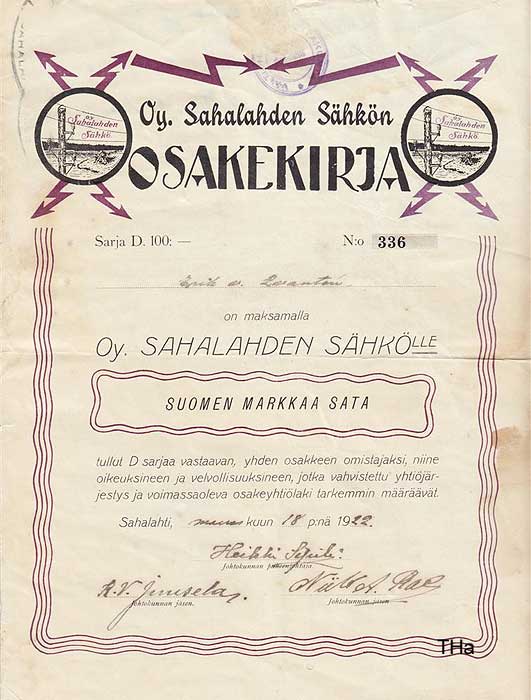 SAHALA
Oy. Sahalahden Sähkön
OSAKEKIRJA
O.Y. Sahalahden Sähkö.
O.Y. Sahalahden Sähkö.
Sarja D. 100: — N:o 336
on maksamalla
Oy. SAHALAHDEN SÄHKÖLLE
SUOMEN MARKKAA SATA
tullut D sarjaa vastaavan, yhden osakkeen omistajaksi, niine
oikeuksineen ja velvollisuuksineen, jotka vahvistettu yhtiöjär-
jestys ja voimassaoleva osakeyhtiölaki tarkemmin määräävät.
Sahalahti, kuun 18 p:nä 1922.
Heikki
Johtokunnan puheenjohtaja.
Johtokunnan jäsen. Johtokunnan jäsen.
THa